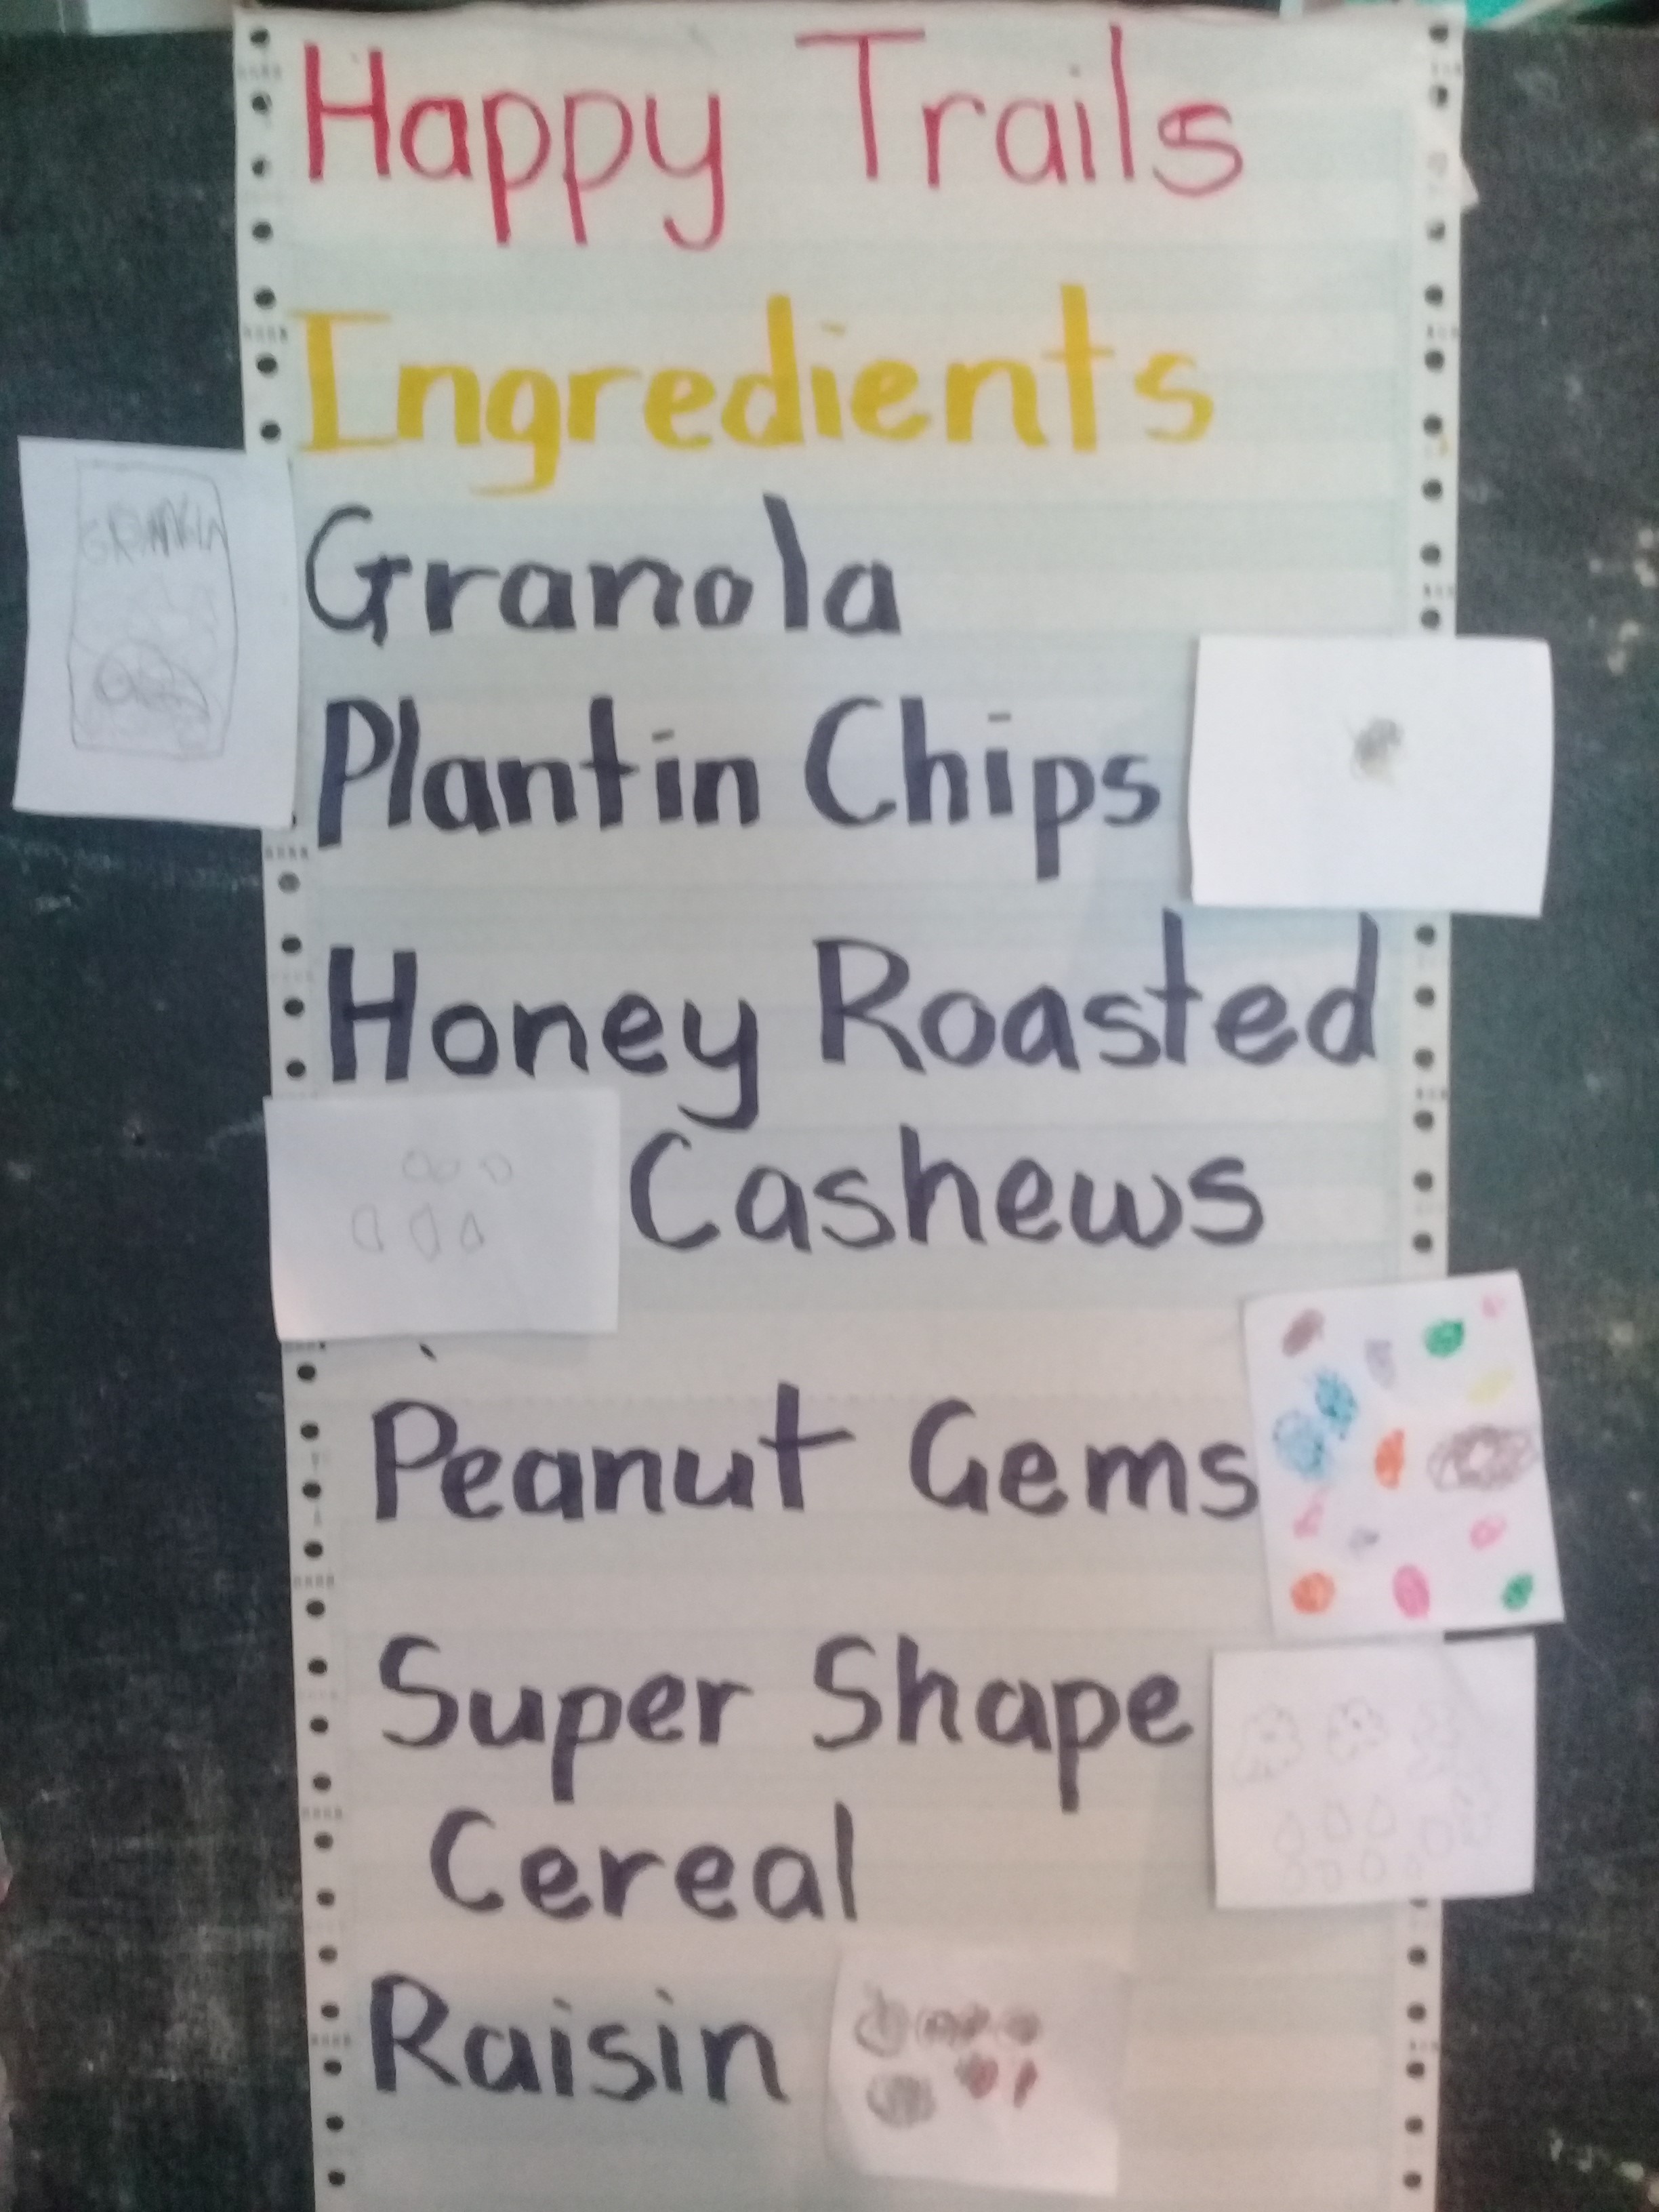 Happy Trails
Ingredients
Granola
Plantin Chips
Honey Roasted
Cashews
Peanut Gems
Super Shape
Cereal
Raisin